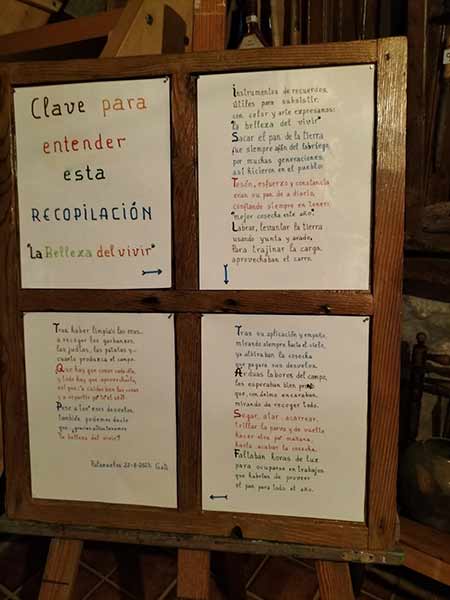 Clave para
entender
esta
RECOPILACIÓN
"La Belleza del vivir"
Instrumentos de recuerdos,
útiles para subsistir,
con color y arte expresamos:
"la belleza del vivir"
Sacar el pan de la tierra
fue siempre afán del labriego,
por muchas generaciones,
así hicieron en el pueblo.
Tesón, esfuerzo y constancia
eran su pan de a diario,
confiando siempre en tener:
"mejor cosecha este año".
Labrar, levantar la tierra
usando yunta y arado,
Para trajinar la carga,
aprovechaban el carro.
Tras su aplicación y empeño,
mirando siempre hacia el cielo,
ya atisbaban la cosecha
que pagara sus desvelos.
Arduas labores del campo,
les esperaban bien pronto
que, con delmo encaraban,
mirando de recoger todo.
Segar, atar, acarrear,
trillar la parva y de vuelta
hacer otra por mañana,
hasta acabar la cosecha.
Faltaban horas de luz
para ocuparse en trabajos
que habrían de proveer
el pan para todo el año.
Tras haber limpiado las eras,
a recoger los garbanzos,
las judías, las patatas y...
cuanto produzca el campo.
Que hay que comer cada día,
y todo hay que aprovecharlo,
Pese a los desvelos,
también podemos decir
"la belleza del vivir"
22-8-2023